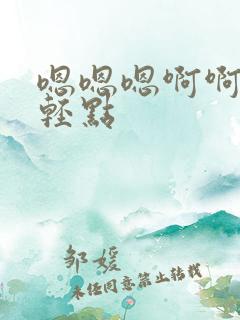 嗯嗯嗯啊啊
輕點
邹媛
未经同意禁止转载